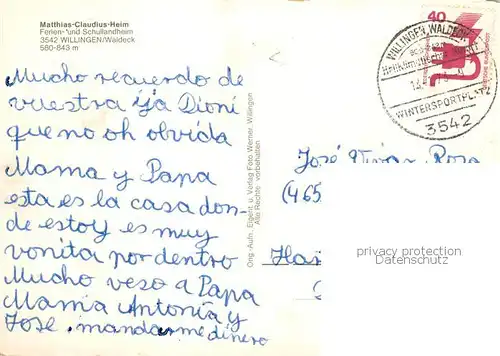 Matthias-Claudius-Heim
Ferien- und Schullandheim
3542 WILLINGEN/Waldeck
580-843 m
Mucho recuerdo de
vuestra ija Dioni
que no oh olvida
Mama y Papa
esta es la casa don-
de estoy es muy
vonita por dentro
Mucho veso a Papa
Mama Antonia y
Jose. mandarme dinero
Orig.-Aufn. Eigent. u. Verlag Foto Werner, Willingen
Alle Rechte vorbehalten
40
WILLINGEN, WALDECK
Heilklimatischer
WINTERSPORTPLATZ
3542
José
(465
privacy protection
Dokumentschutz